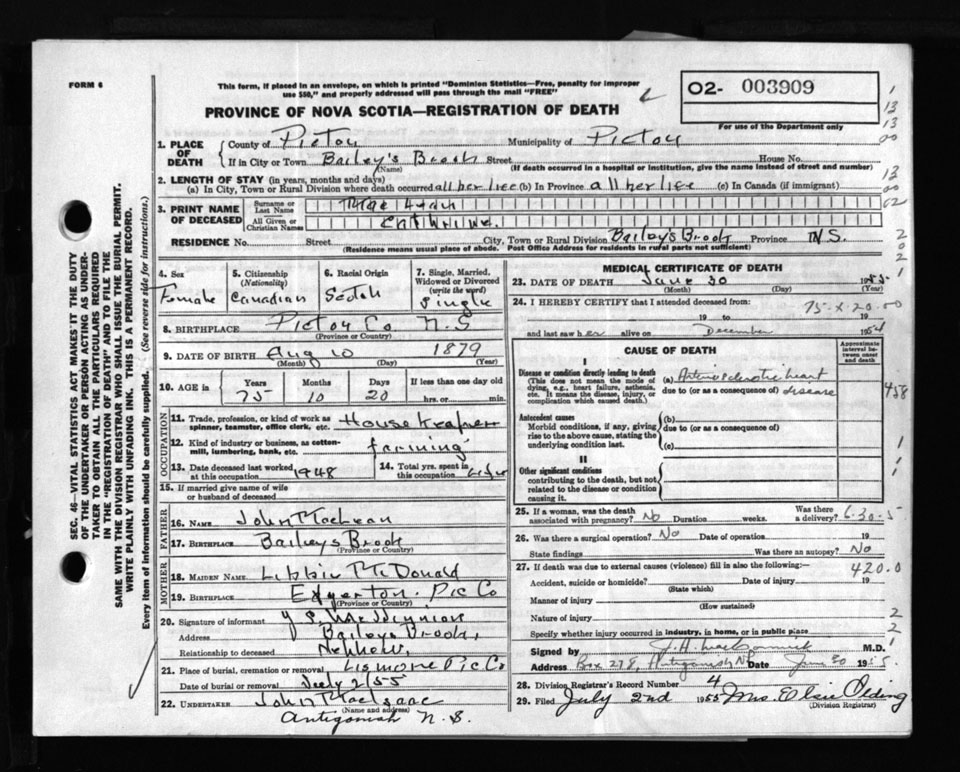 FORM 6
This form, if placed in an envelope, on which is printed "Dominion Statistics—Free, penalty for improper
use $50," and properly addressed will pass through the mail "FREE"
PROVINCE OF NOVA SCOTIA—REGISTRATION OF DEATH
O2- 003909
For use of the Department only
1. PLACE OF DEATH
County of Pictou Municipality of Pictou
If in City or Town Bailey's Brook Street House No.
(Name) (If death occurred in a hospital or institution, give the name instead of street and number)
2. LENGTH OF STAY (in years, months and days)
(a) In City, Town or Rural Division where death occurred all her life (b) In Province all her life (c) In Canada (if immigrant)
3. PRINT NAME OF DECEASED
Surname or Last Name Mac Lean
All Given or Christian Names Catherine.
RESIDENCE No. Street City, Town or Rural Division Bailey's Brook Province N.S.
(Residence means usual place of abode. Post Office Address for residents in rural parts not sufficient)
4. Sex Female
5. Citizenship (Nationality) Canadian
6. Racial Origin Scotch
7. Single, Married, Widowed or Divorced (write the word) Single
8. BIRTHPLACE Pictou Co N.S
(Province or Country)
9. DATE OF BIRTH Aug 10 1879
(Month) (Day) (Year)
10. AGE in Years Months Days If less than one day old
75 10 20 hrs. or min.
OCCUPATION
11. Trade, profession, or kind of work as spinner, teamster, office clerk, etc. House Keeper
12. Kind of industry or business, as cotton-mill, lumbering, bank, etc. farming
13. Date deceased last worked at this occupation 1948
14. Total yrs. spent in this occupation
15. If married give name of wife or husband of deceased
FATHER
16. NAME John MacLean
17. BIRTHPLACE Baileys Brook
(Province or Country)
MOTHER
18. MAIDEN NAME Libbie McDonald
19. BIRTHPLACE Egerton. Pic Co
(Province or Country)
20. Signature of informant
Address Baileys Brook,
Relationship to deceased Nephew,
21. Place of burial, cremation or removal Lismore Pic Co
Date of burial or removal July 2/55
22. UNDERTAKER John MacIsaac
(Name and address)
Antigonish N.S.
MEDICAL CERTIFICATE OF DEATH
23. DATE OF DEATH June 30 1955
(Month) (Day) (Year)
24. I HEREBY CERTIFY that I attended deceased from:
75-X-20-00
19 to 19
and last saw her alive on December 1954
CAUSE OF DEATH
Approximate interval between onset and death
I
Disease or condition directly leading to death
(This does not mean the mode of dying, e.g., heart failure, asthenia, etc. It means the disease, injury, or complication which caused death.)
(a) Arteriosclerotic heart
due to (or as a consequence of) disease
458
Antecedent causes
Morbid conditions, if any, giving rise to the above cause, stating the underlying condition last.
(b)
due to (or as a consequence of)
(c)
II
Other significant conditions
contributing to the death, but not related to the disease or condition causing it.
25. If a woman, was the death associated with pregnancy? No Duration weeks. Was there a delivery? 6-30-5
26. Was there a surgical operation? No Date of operation 19
State findings Was there an autopsy? No
27. If death was due to external causes (violence) fill in also the following:— 420.0
Accident, suicide or homicide? Date of injury 19
(State which)
Manner of injury
(How sustained)
Nature of injury
Specify whether injury occurred in industry, in home, or in public place
Signed by J.H. MacCormick M.D.
Address Box 278, Antigonish NS Date June 30 1955.
28. Division Registrar's Record Number 4
29. Filed July 2nd 1955 Mrs. Elsie Olding
(Division Registrar)
SEC. 46—VITAL STATISTICS ACT MAKES IT THE DUTY
OF THE UNDERTAKER OR PERSON ACTING AS UNDER-
TAKER TO OBTAIN ALL THE PARTICULARS REQUIRED
IN THE "REGISTRATION OF DEATH" AND TO FILE THE
SAME WITH THE DIVISION REGISTRAR WHO SHALL ISSUE THE BURIAL PERMIT.
WRITE PLAINLY WITH UNFADING INK. THIS IS A PERMANENT RECORD.
Every item of information should be carefully supplied. (See reverse side for instructions.)
1
13
13
00
13
00
02
2
0
2
2
1
1
1
1
2
2
1